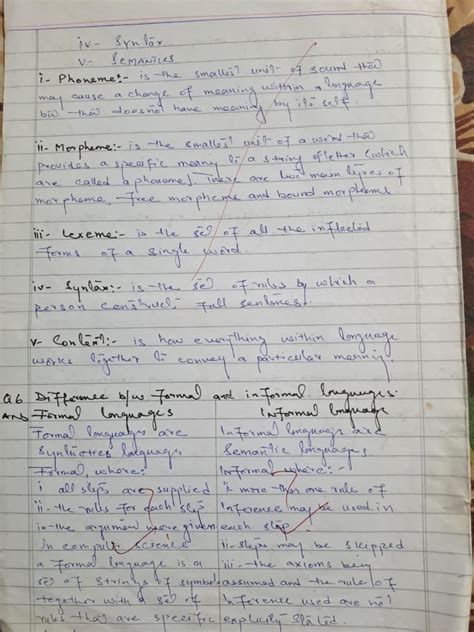 iv- Syntax
v- SEMANTICS
i- Phoneme:- is the smallest unit of sound that
may cause a change of meaning within a language
but that doesnot have meaning by its self.
ii- Morpheme:- is the smallest unit of a word that
provides a specific meany to a string of letter (which
are called a phoneme). There are two main types of
morpheme, free morpheme and bound morpheme.
iii- Lexeme:- is the set of all the inflected
forms of a single word.
iv- Syntax:- is the set of rules by which a
person construct full sentences.
v- Context:- is how everything within language
works together to convey a particular meaning.
Q6 Difference b/w Formal and informal languages.
ANS Formal languages
Informal language
Formal languages are
Syntactics language
Formal, where:
i all steps are supplied
ii- the rules for each step
in the argument more given
in computer science
a Formal language is a
set of strings of symbol
together with a set of
rules that are specific
Informal language are
Semantic languages
Informal where:-
i- more than one rule of
Inference may be used in
each step
ii- steps may be skipped
iii- the axioms being
assumed and the rule of
inference used are not
explicitly stated.